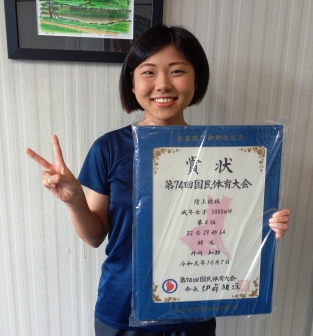 賞状
第74回国民体育大会
陸上競技
成年女子 5000mW
第6位
22分29秒64
令和元年10月7日
第74回国民体育大会
会長 伊藤雅俊